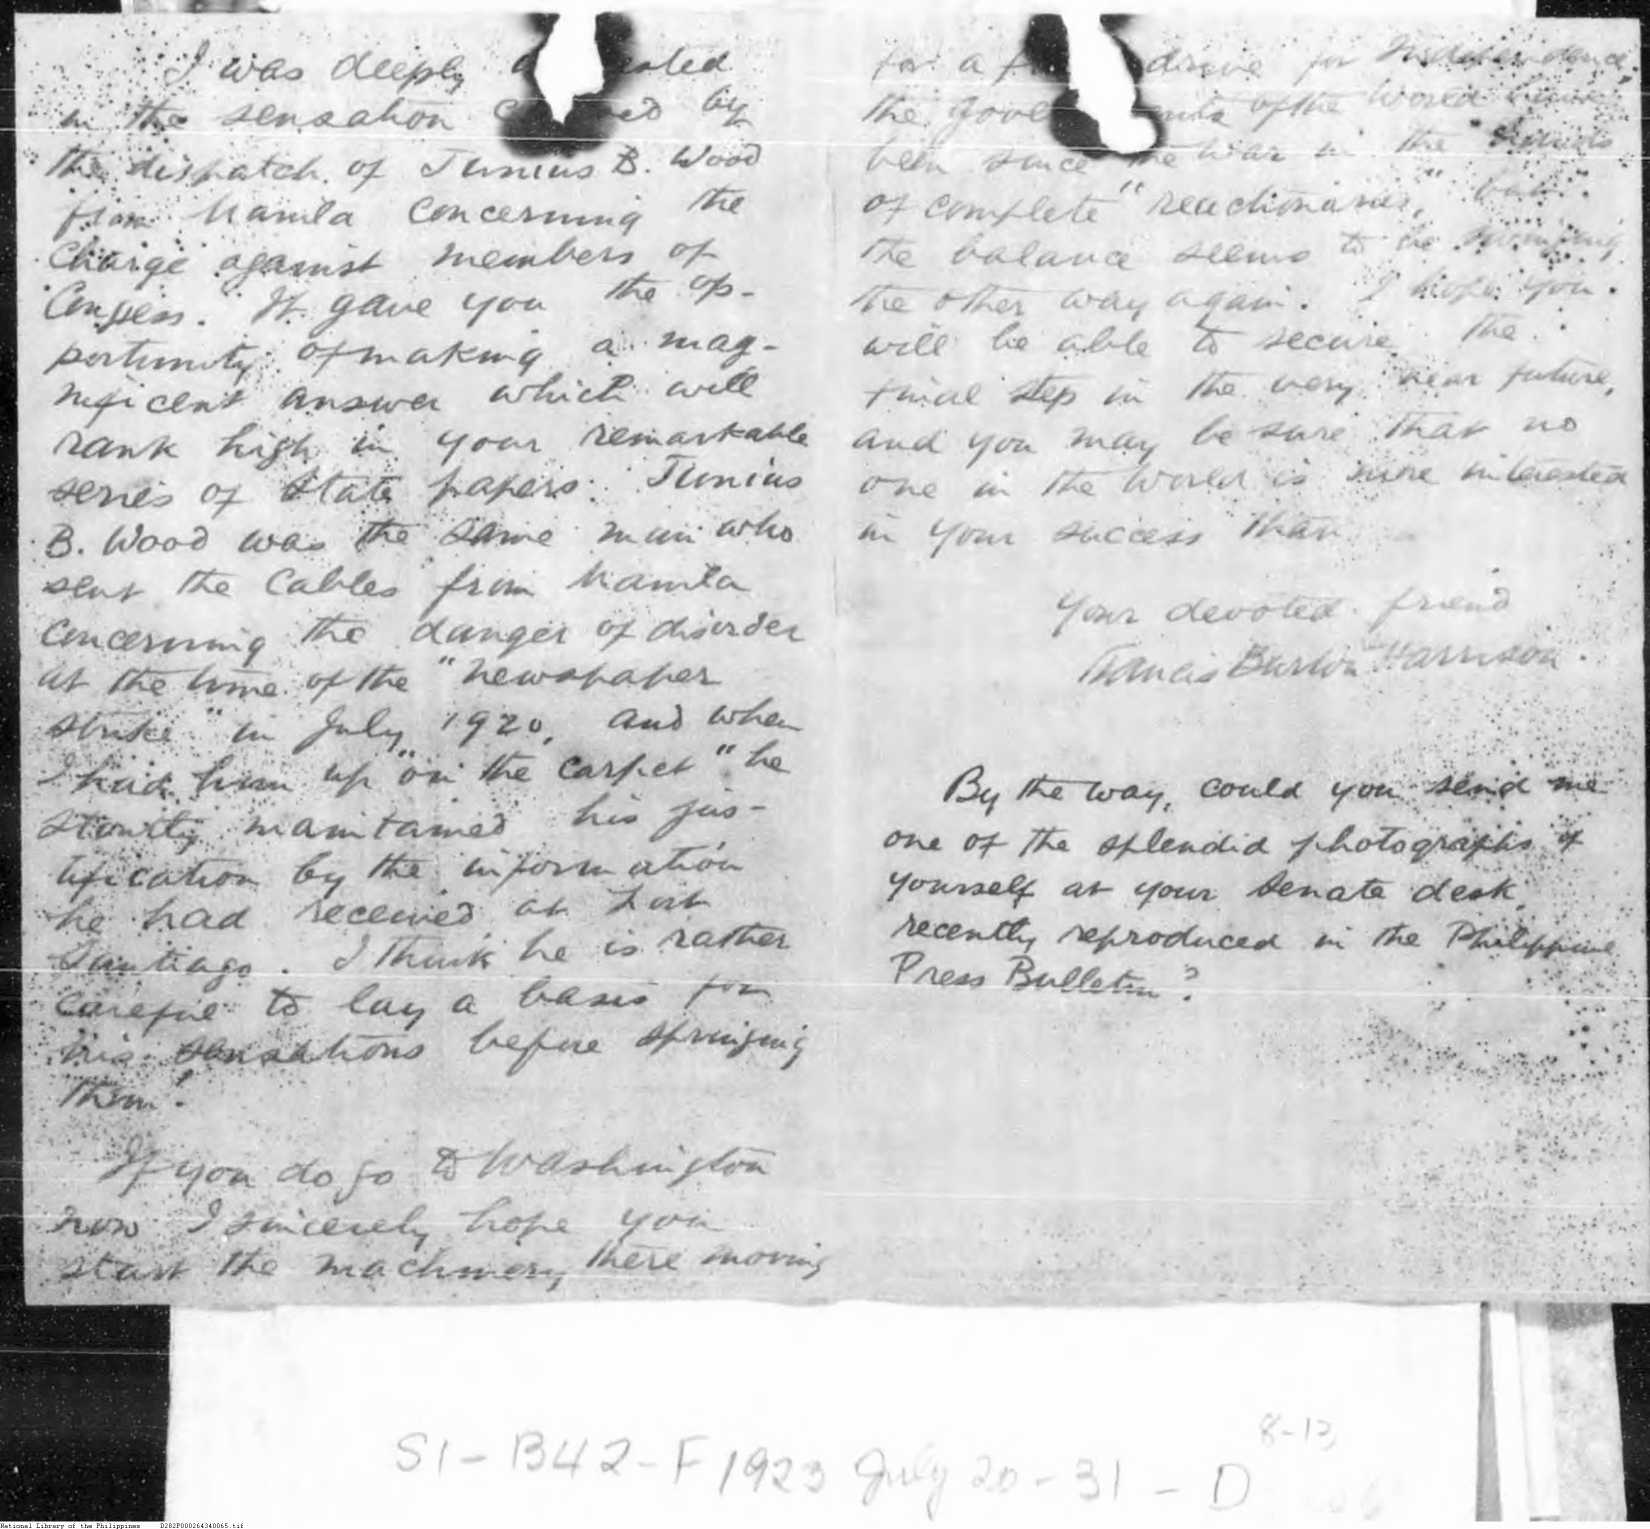 I was deeply
in the sensation by
the dispatch of Junius B. Wood
from Manila concerning the
charge against members of
Congress. It gave you the op-
portunity of making a mag-
nificent answer which will
rank high in your remarkable
series of State papers. Junius
B. Wood was the same man who
sent the cables from Manila
concerning the danger of disorder
at the time of the "newspaper
strike" in July 1920, and when
I had him up "on the carpet" he
stoutly maintained his jus-
tification by the information
he had received at Fort
Santiago. I think he is rather
careful to lay a basis for
his sensations before springing
them!
If you do go to Washington
now I sincerely hope you
start the machinery there moving
for a drive for Independence,
the of the World have
been since the war in the hands
of complete "reactionaries," but
the balance seems to be swinging
the other way again. I hope you
will be able to secure the
final step in the very near future,
and you may be sure that no
one in the World is more interested
in your success than
Your devoted friend
Francis Burton Harrison.
By the way, could you send me
one of the splendid photographs of
yourself at your Senate desk,
recently reproduced in the Philippine
Press Bulletin?
8-12
S1-B42-F1923 July 20-31-D
National Library of the Philippines D282P000264340065.tif